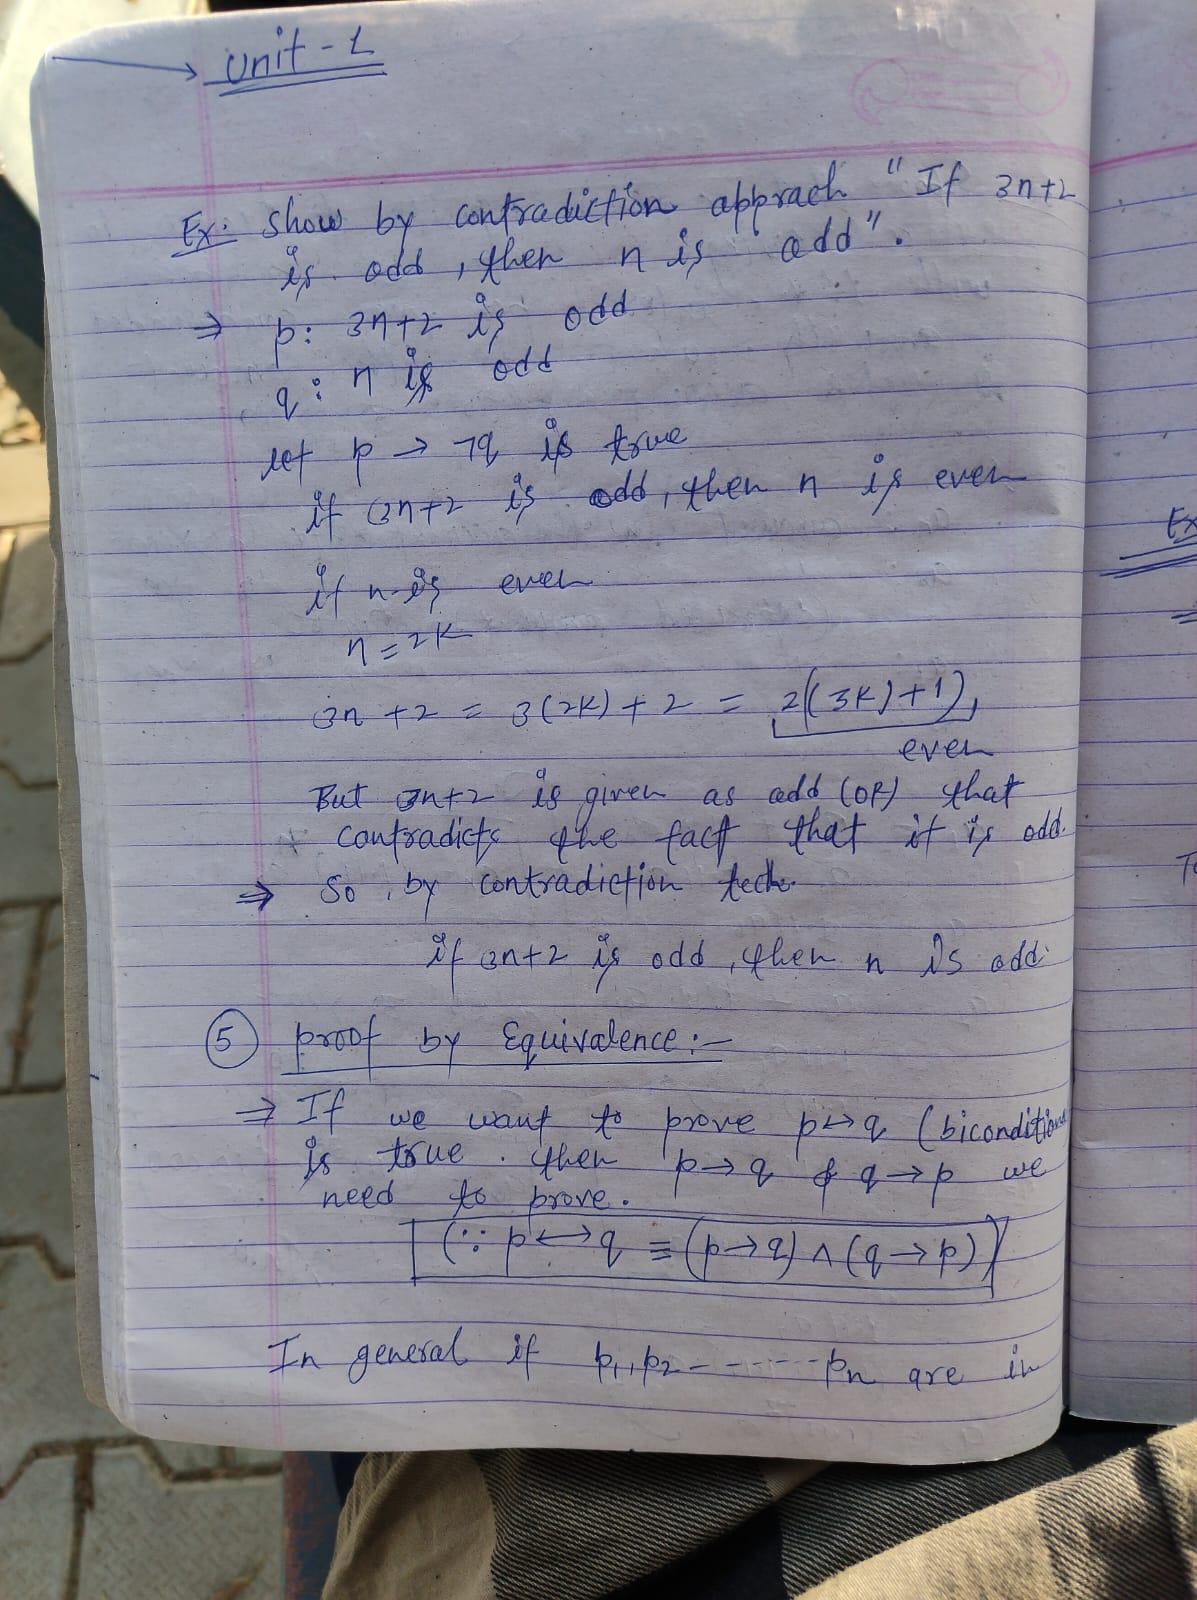 Unit - 1
Ex: Show by contradiction apprach "If 3n+2
is odd, then n is odd".
⇒ p: 3n+2 is odd
q: n is odd
let p → ¬q is true
if 3n+2 is odd, then n is even
if n is even
n = 2k
3n + 2 = 3(2k) + 2 = 2((3k)+1)
even
But 3n+2 is given as odd (OR) that
contradicts the fact that it is odd.
⇒ So, by contradiction tech.
if 3n+2 is odd, then n is odd.
5 Proof by Equivalence :-
⇒ If we want to prove p↔q (biconditional
is true. then p→q & q→p we
need to prove.
(∵ p↔q ≡ (p→q) ∧ (q→p))
In general if p1, p2 ------- pn are in
Ex